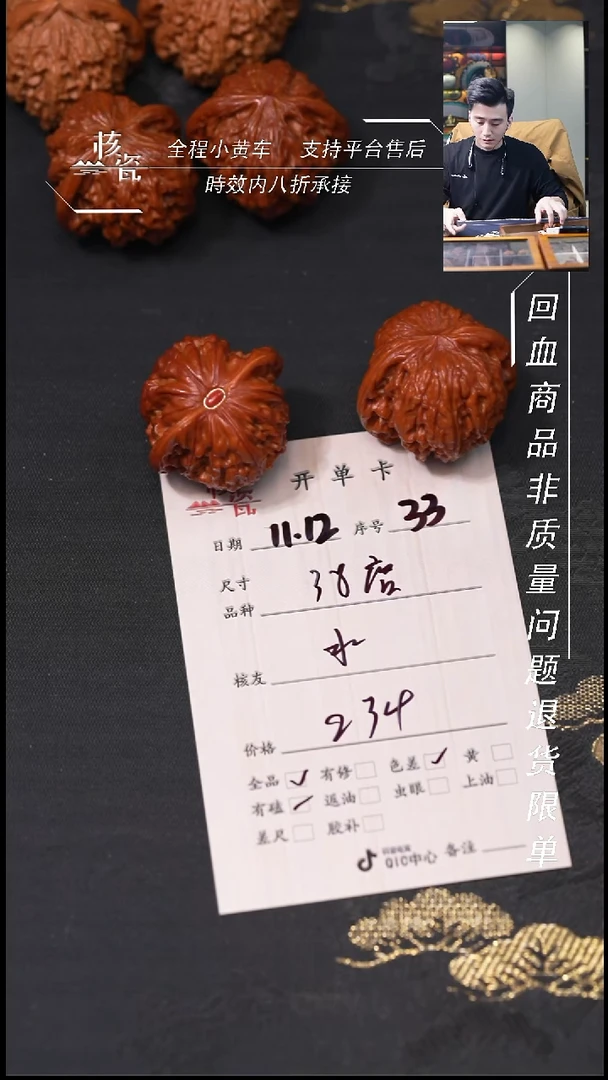 核瓷
全程小黄车 支持平台售后
時效内八折承接
回血商品非质量问题退货限单
开单卡
日期 11.12 序号 33
尺寸 38
品种
核友 水
价格 234
全品 ✓ 有修 色差 ✓ 黄
有磕 ✓ 返油 虫眼 上油
差尺 胶补
QIC中心 备注